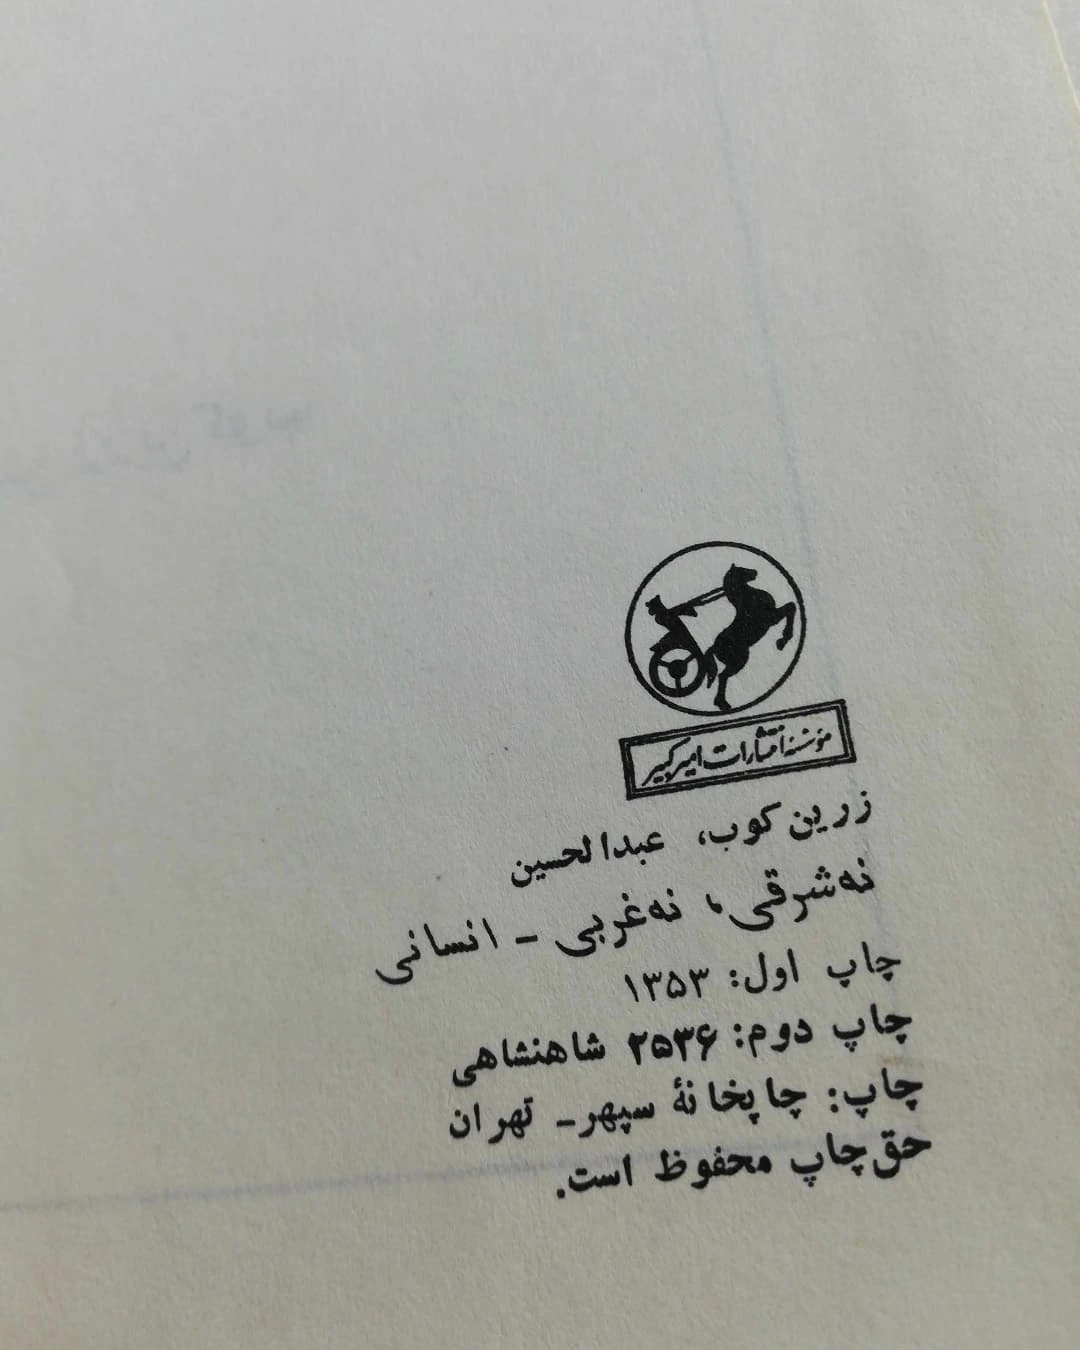 مؤسسهٔ انتشارات امیرکبیر
زرین‌کوب، عبدالحسین
نه‌شرقی، نه‌غربی - انسانی
چاپ اول: ۱۳۵۳
چاپ دوم: ۲۵۳۶ شاهنشاهی
چاپ: چاپخانهٔ سپهر- تهران
حق‌چاپ محفوظ است.